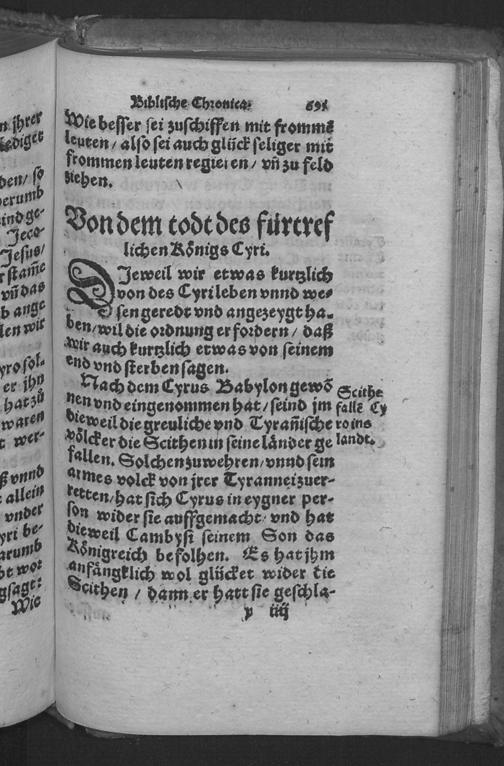 n jhrer
lediget
den/ so
erumb
ind ge-
Jeco-
Jesus/
r stam̃e
vñ das
b ange
len wir
yro sol-
er jhn
hat zů
waren
t wer-
ß vnnd
t allein
vnder
yri be-
arumb
ht wor
gsagt:
Wie
Biblische Chronica. 691
Wie besser sei zuschiffen mit frommẽ
leuten / also sei auch glück seliger mit
frommen leuten regieren / vñ zu feld
ziehen.
Von dem todt des fürtref
lichen Königs Cyri.
DJeweil wir etwas kurtzlich
von des Cyri leben vnnd we-
sen geredt vnd angezeygt ha-
ben/ wil die ordnung erfordern / daß
wir auch kurtzlich etwas von seinem
end vnd sterben sagen.
Nach dem Cyrus Babylon gewõ
nen vnd eingenommen hat / seind jm
dieweil die greuliche vnd Tyrañische
völcker die Scithen in seine länder ge
fallen. Solchen zuwehren / vnnd sein
armes volck von jrer Tyrannei zuer-
retten / hat sich Cyrus in eygner per-
son wider sie auffgemacht / vnd hat
dieweil Cambysi seinem Son das
Königreich befolhen. Es hat jhm
anfängklich wol glücket wider die
Scithen / dann er hatt sie geschla-
y iiij
Scithe
fallẽ Cy
ro ins
landt.